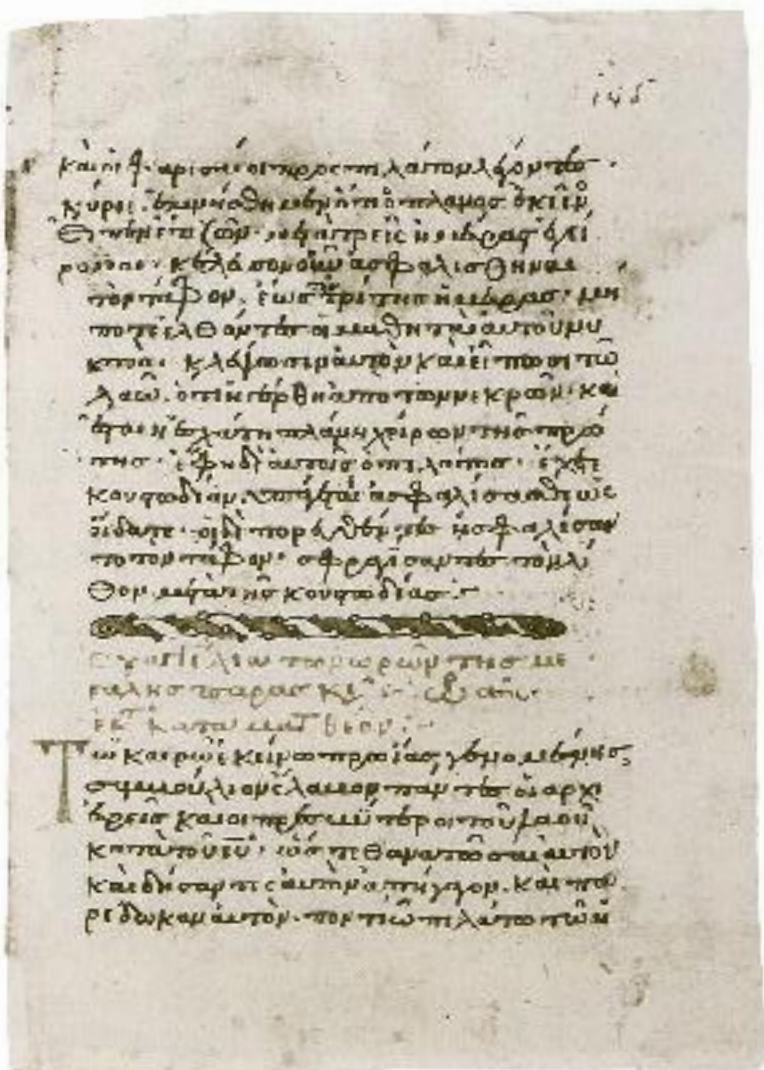 καὶ οἱ φαρισαῖοι πρὸς πιλάτον λέγοντες·
κύριε· ἐμνήσθημεν ὅτι ὁ πλάνος ἐκεῖνο
ἔτι ζῶν· μετὰ τρεῖς ἡμέρας ἐγεί
ρομαι· κέλευσον οὖν ἀσφαλισθῆναι
τὸν τάφον, ἕως τρίτης ἡμέρας· μή
ποτε ἐλθόντες οἱ μαθηταὶ αὐτοῦ νυ
κτὸς· κλέψωσιν αὐτὸν καὶ εἴπωσι τῶ
λαῶ. ὅτι ἠγέρθη ἀπὸ τῶν νεκρῶν· καὶ
ἔσται ἡ ἐσχάτη πλάνη χείρων τῆς πρώ
της· ἔφη δὲ αὐτοῖς ὁ πιλάτος· ἔχετε
κουστωδίαν. ὑπάγετε ἀσφαλίσασθε ὡς
οἴδατε· οἱ δὲ πορευθέντες ἠσφαλίσαν
το τὸν τάφον· σφραγίσαντες τὸν λί
θον μετὰ τῆς κουστωδίας:
τῶν ὡρῶν τῆς με
γάλης παρασκευῆς
ἐκ κατὰ ματθαῖον:
Τῶ καιρῶ ἐκείνω πρωΐας γενομένης,
συμβούλιον ἔλαβον πάντες οἱ ἀρχι
ερεῖς καὶ οἱ πρεσβύτεροι τοῦ λαοῦ
κατὰ τοῦ ιυ· ὥστε θανατῶσαι αὐτὸν
καὶ δήσαντες αὐτὸν ἀπήγαγον. καὶ πα
ρέδωκαν αὐτὸν· ποντίω πιλάτω τῶ ἡ